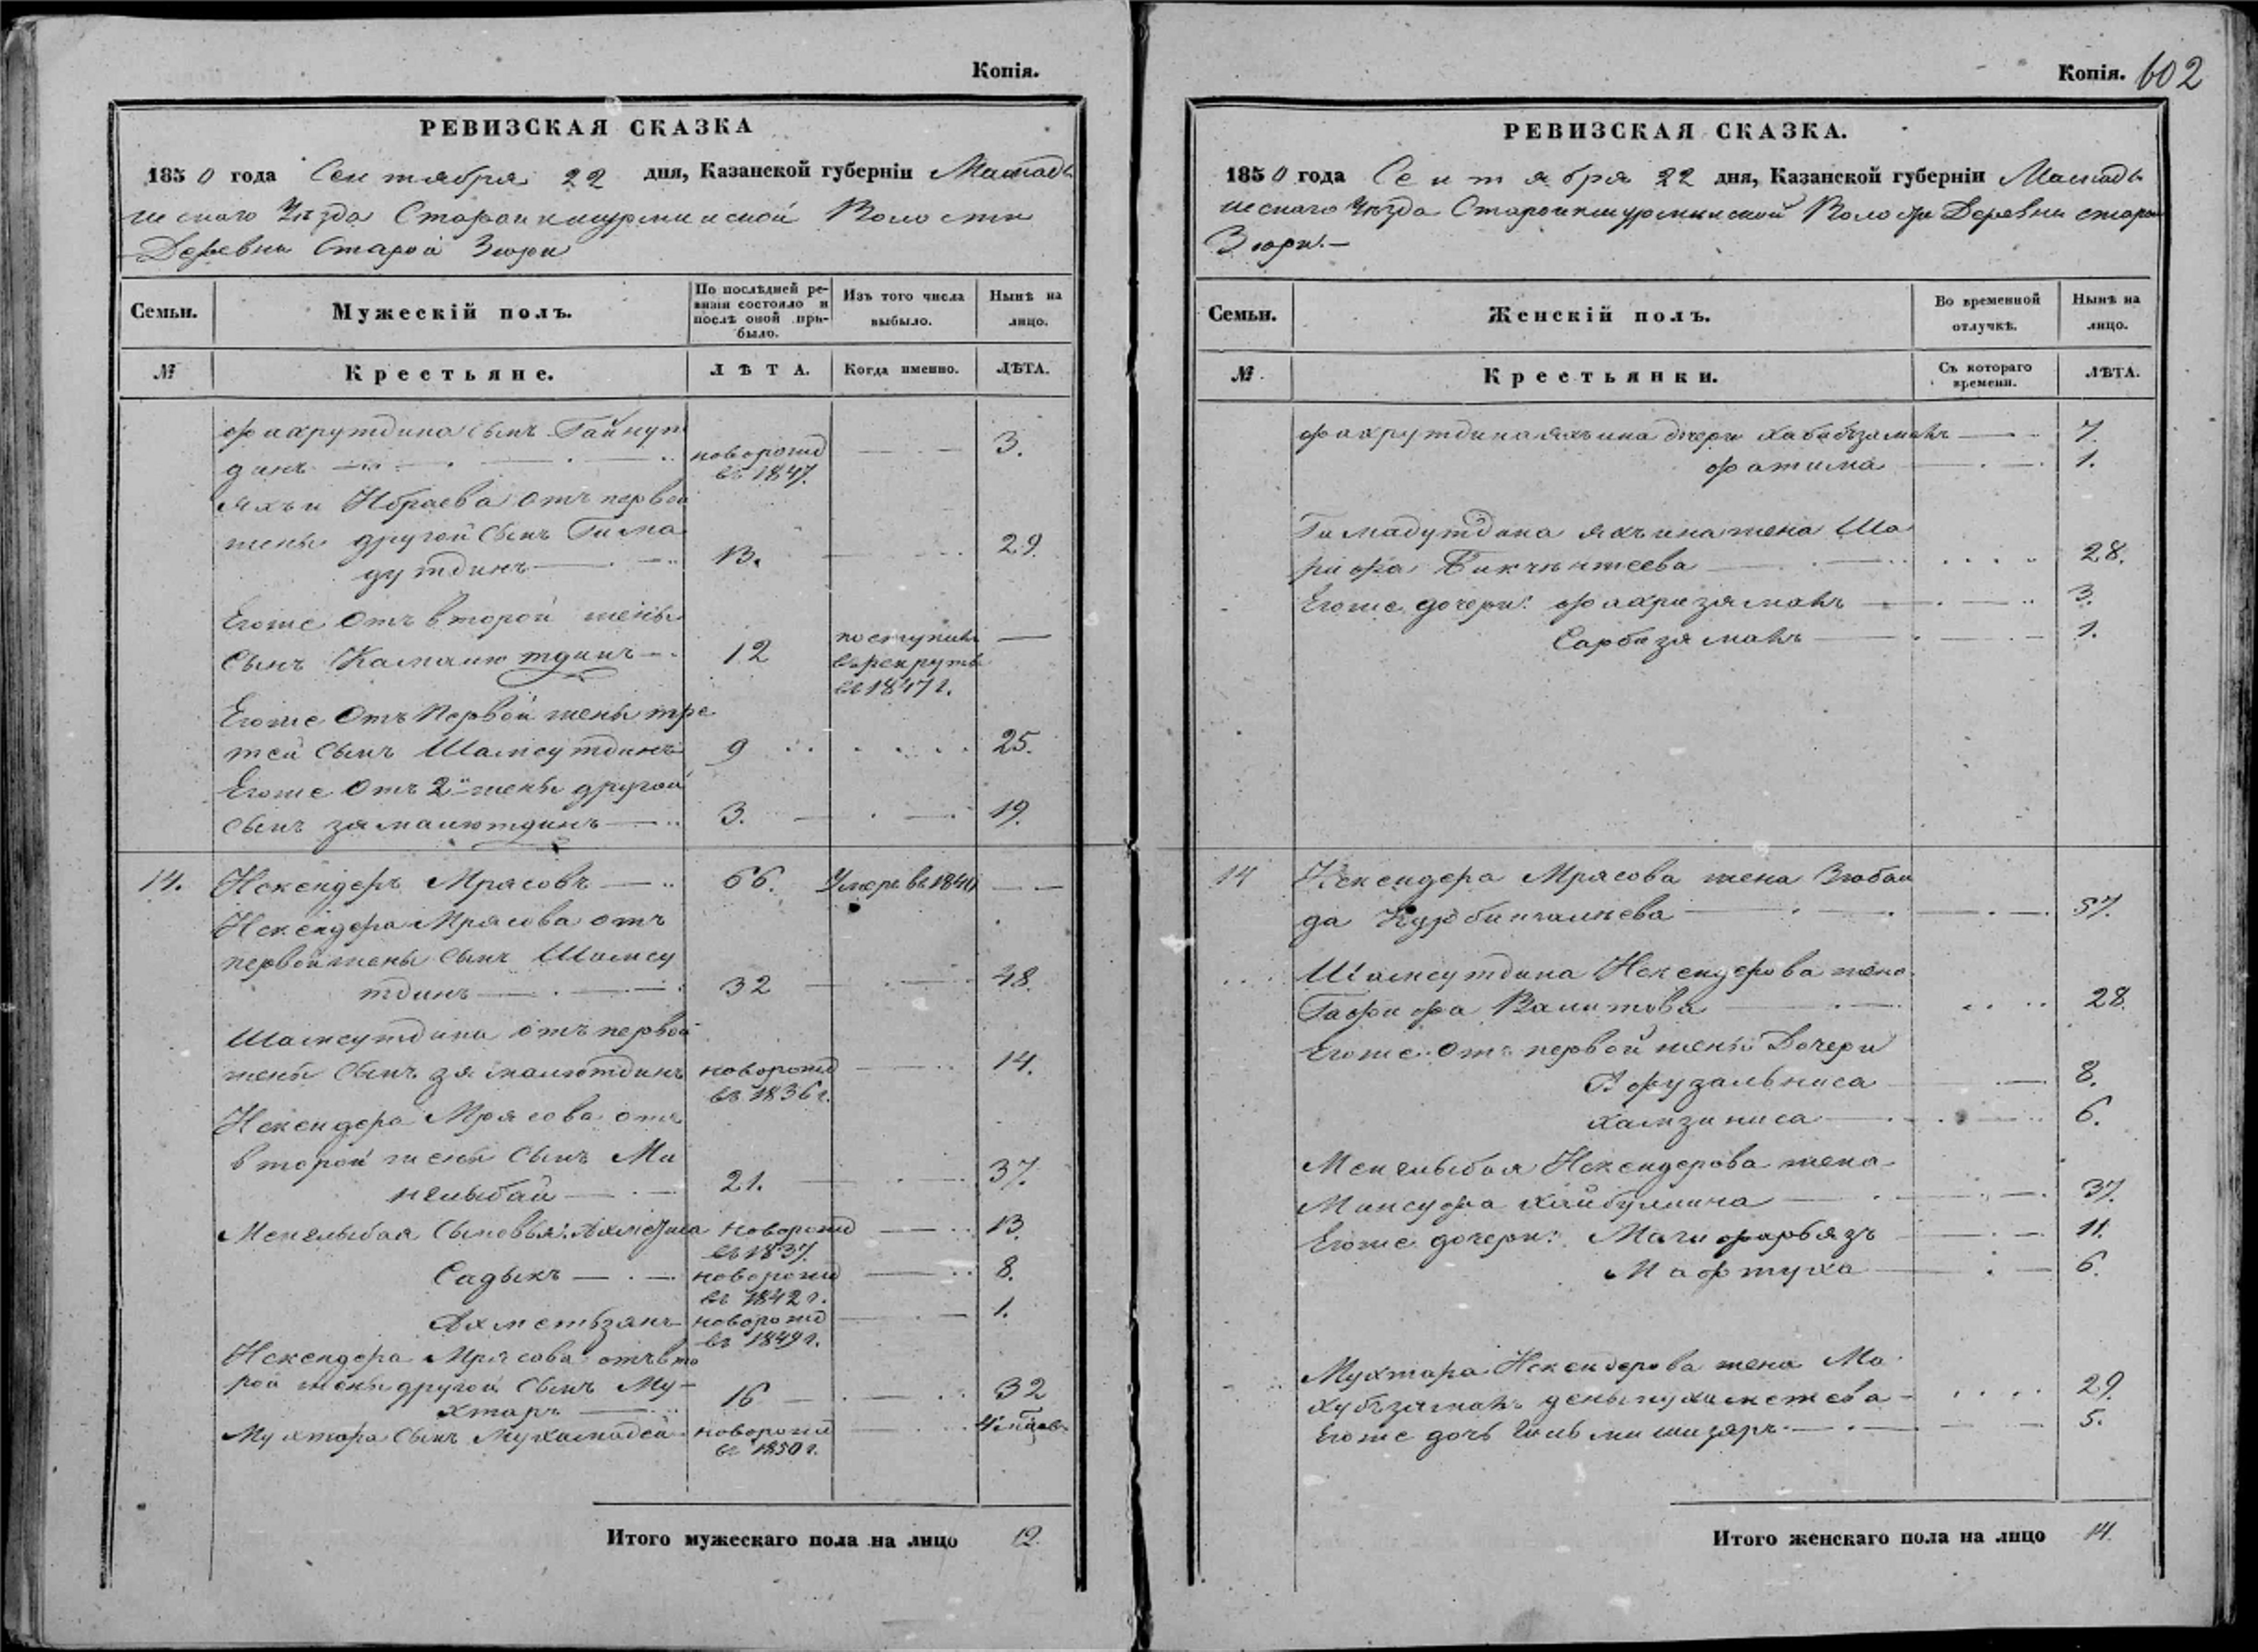 Копія.
РЕВИЗСКАЯ СКАЗКА
1850 года Сентября 22 дня, Казанской губерніи Мамады
шскаго Уѣзда Староикшурминской Волости
Деревни Старой Зюри
Семьи.
Мужескій полъ.
По послѣдней ре-
визіи состояло и
послѣ оной при-
было.
Изъ того числа
выбыло.
Нынѣ на
лицо.
№
Крестьяне.
ЛѢТА.
Когда именно.
ЛѢТА.
Фахрутдина сынъ Гайнут
динъ новорожд 3.
въ 1847.
Яхъи Ибраева отъ первой
жены другой сынъ Гима
дутдинъ 13. 29.
Егоже отъ второй жены
сынъ Камалютдинъ 12 поступилъ
въ рекруты
въ 1847 г.
Егоже отъ первой жены тре
тей сынъ Шамсутдинъ 9 25.
Егоже отъ 2й жены другой
сынъ Замалютдинъ 3. 19.
14. Искендеръ Мрясовъ 66. Умеръ въ
Искендера Мрясова отъ
первой жены сынъ Шамсу
тдинъ 32 48.
Шамсутдина отъ первой
жены сынъ Замалютдинъ новорожд 14.
въ 1836 г.
Искендера Мрясова отъ
второй жены сынъ Ми
нглыбай 21. 37.
Менглыбая сыновья: новорожд 13.
въ 1837.
Садыкъ новорожд 8.
въ 1842 г.
Ахметьзянъ новорожд 1.
въ 1849 г.
Искендера Мрясова отъ вто
рой жены другой сынъ Му-
хтаръ 16 32
Мухтара сынъ Мухамадей новорожд
въ 1850 г.
Итого мужескаго пола на лицо 12.
Копія. 602
РЕВИЗСКАЯ СКАЗКА.
1850 года Сентября 22 дня, Казанской губерніи Мамады
шскаго Уѣзда Староикшурминской Волости Деревни старой
Зюри.—
Семьи.
Женскій полъ.
Во временной
отлучкѣ.
Нынѣ на
лицо.
№
Крестьянки.
Съ котораго
времени.
ЛѢТА.
Фахрутдина Яхъина дочери Хабибзямалъ 7.
Фатима 1.
Гимадутдина Яхъина жена Ша
рифа Бикчентеева 28.
Егоже дочери: Фахризямалъ 3.
Сарбизямалъ 1.
14 Искендера Мрясова жена Зюбаи
да Курбангалеева 57.
Шамсутдина Искендерова жена
Гафифа Валитова 28.
Егоже отъ первой жены Дочери
Афузальниса 8.
Хамзиниса 6.
Менглыбая Искендерова жена
Мансуфа Хайбуллина 37.
Егоже дочери: Магифарьязъ 11.
Мафтуха 6.
Мухтара Искендерова жена Ма
хубзямалъ 29.
Егоже дочь 5.
Итого женскаго пола на лицо 14.